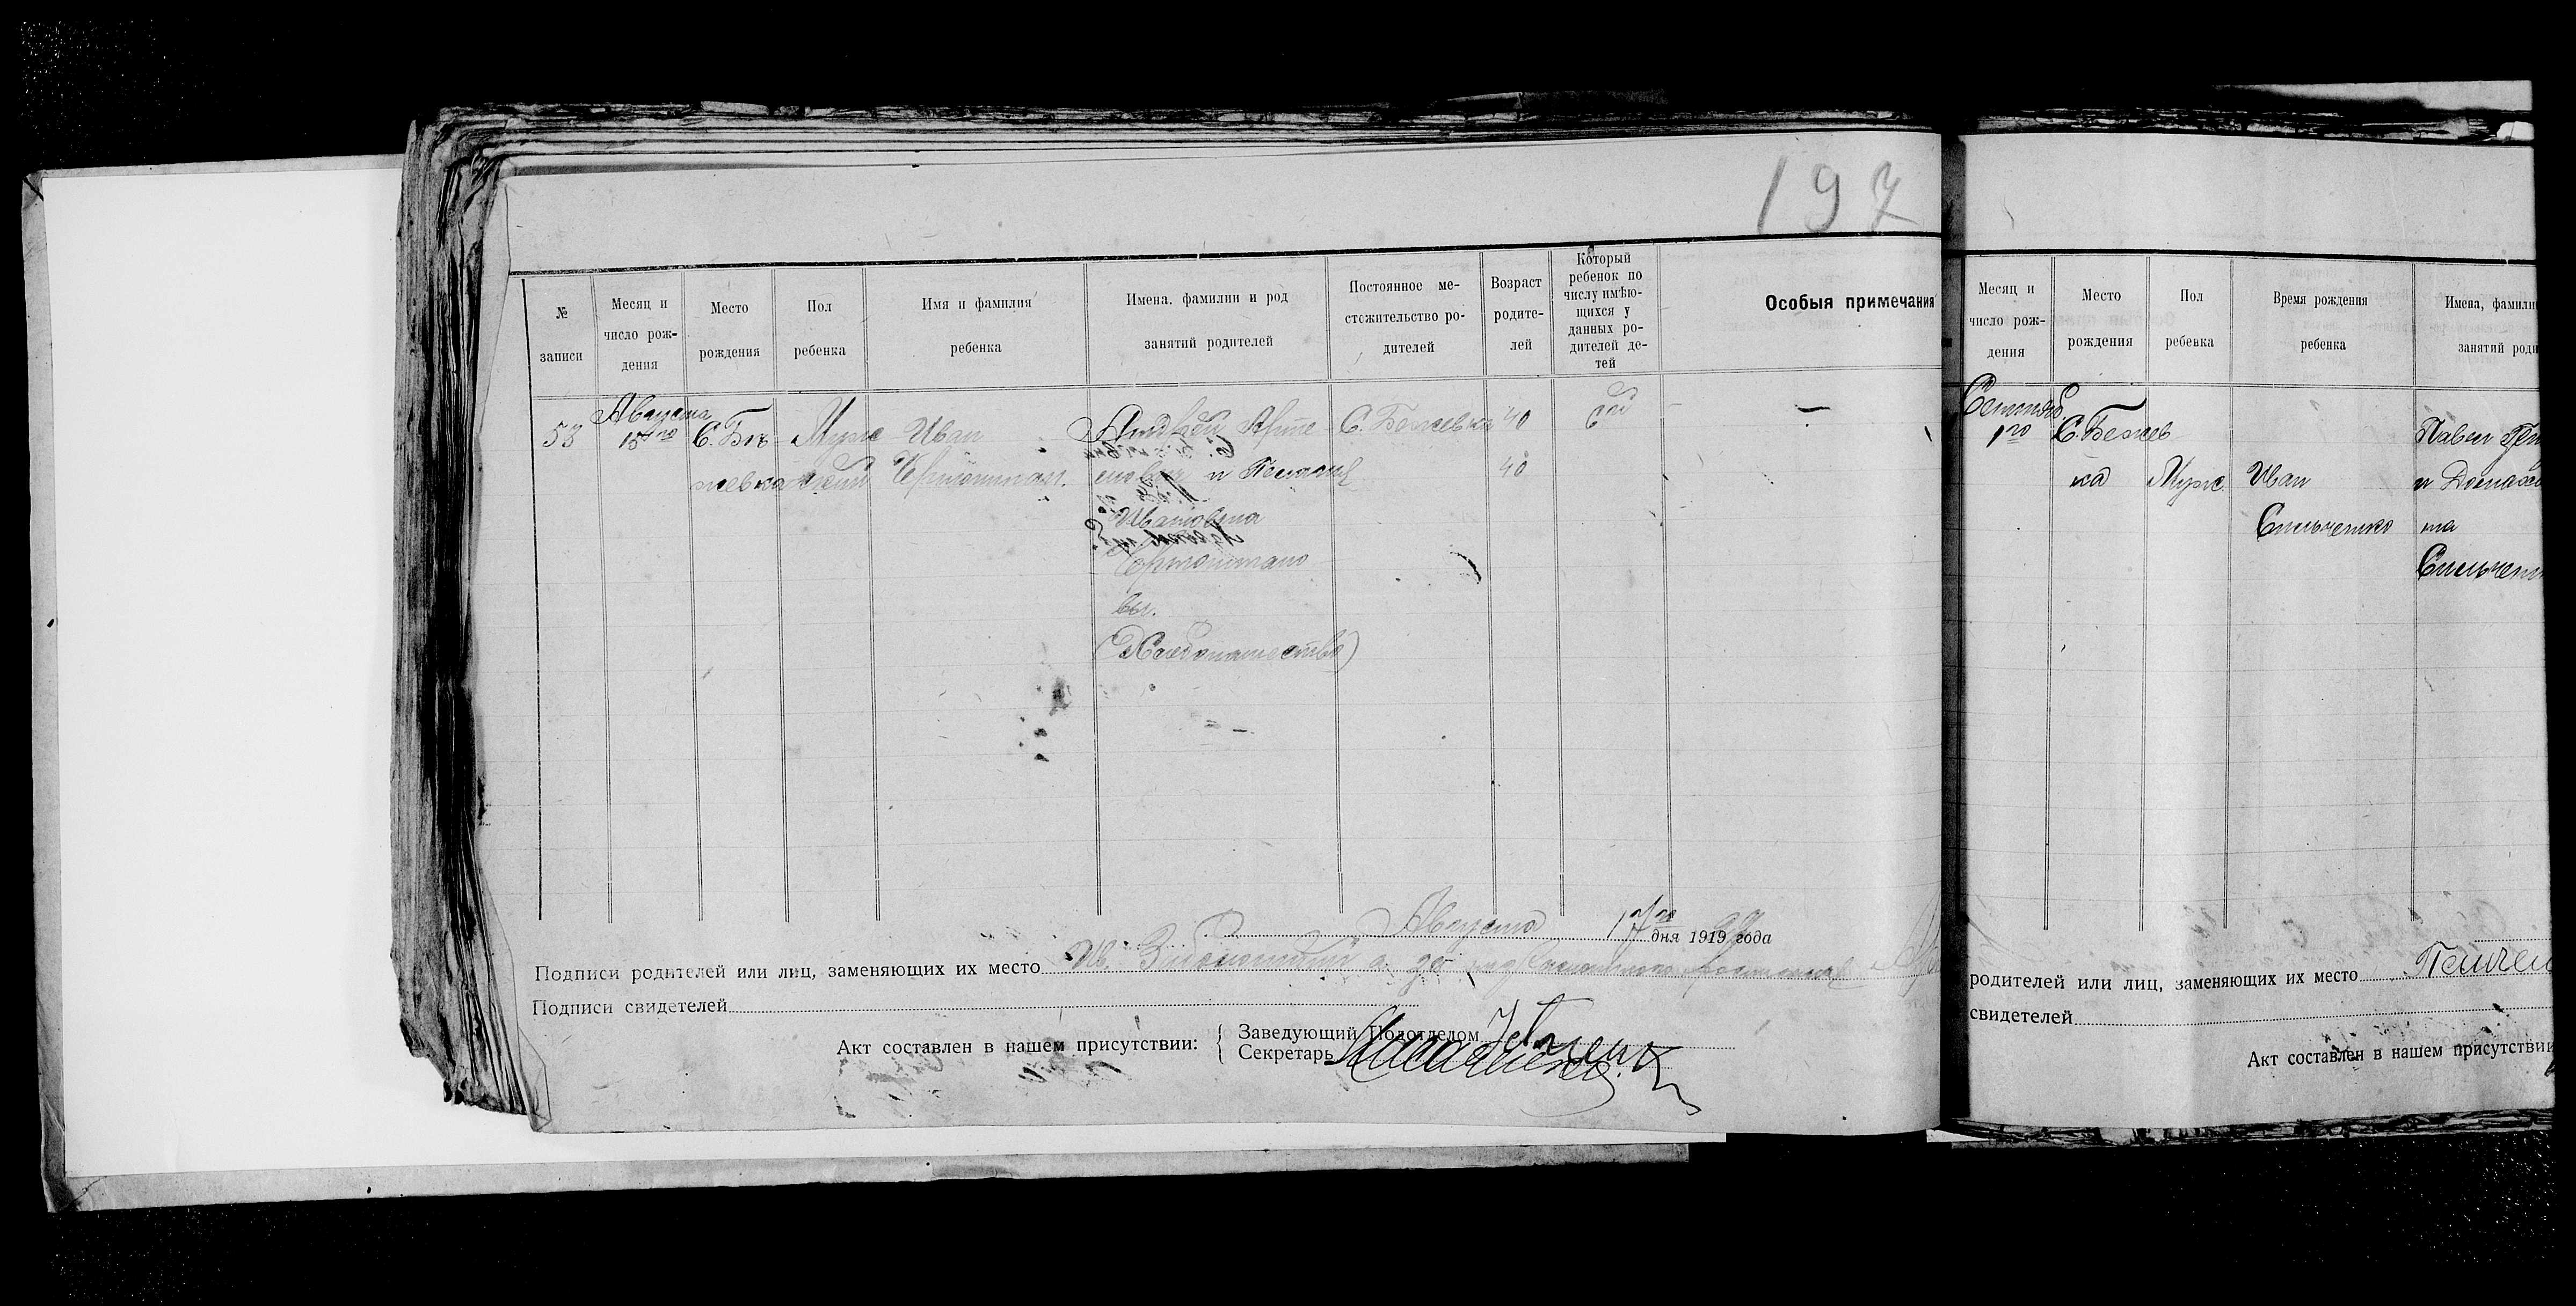 197
№ записи
Месяц и число рож-дения
Место рождения
Пол ребенка
Имя и фамилия ребенка
Имена. фамилии и род занятий родителей
Постоянное ме-стожительство ро-дителей
Возраст родите-лей
Который ребенок по числу имѣю-щихся у данных ро-дителей де-тей
Особыя примечания
Августа
53 15го С. Бѣ- Муж- Иван Арте- С. Бежевка 40 6ой —
жевка ской и Пелагия 40
Ивановна
вы.
(Хлебопашество)
Августа 17го дня 1919 года
Подписи родителей или лиц, заменяющих их место Ив.
Подписи свидетелей
Акт составлен в нашем присутствии:
Заведующий Подотделом
Секретарь
Месяц и число рож-дения
Место рождения
Пол ребенка
Время рождения ребенка
Имена, фамили
занятий роди
Сентяб.
1го С. Бежев Павел
ка Муж. Иван и
Сильченко на
Сильчен
родителей или лиц, заменяющих их место
свидетелей
Акт составлен в нашем присутствии